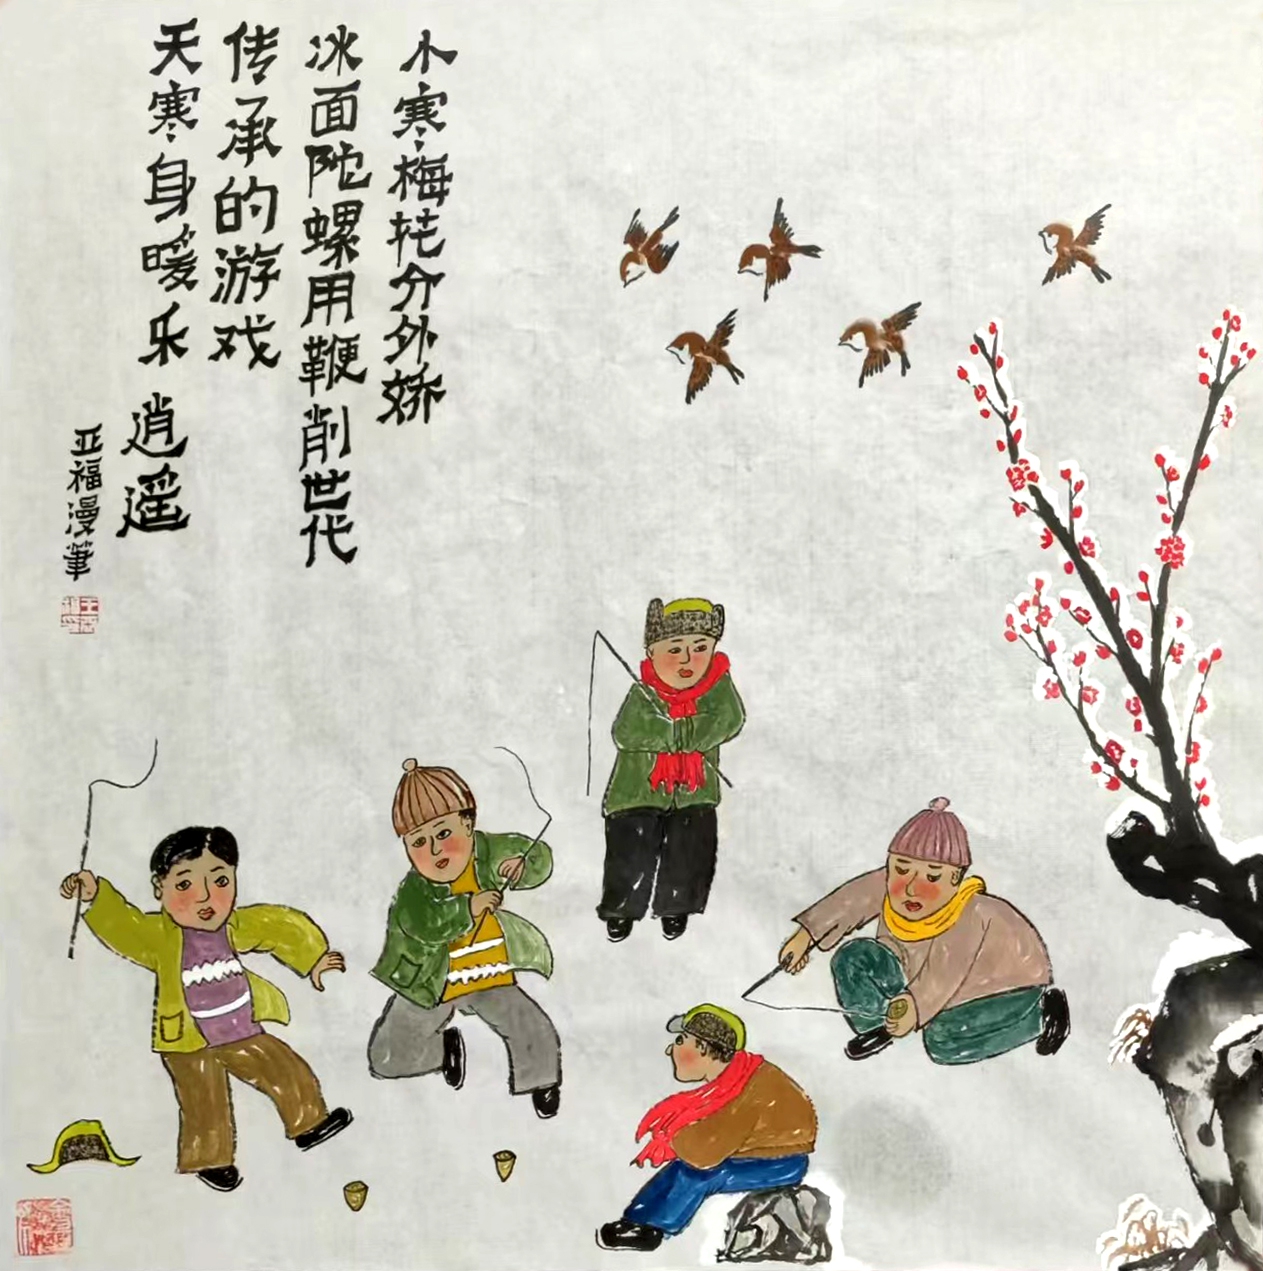 小寒梅花分外娇
冰面陀螺用鞭削世代
传承的游戏
天寒身暖乐逍遥
亚福漫筆